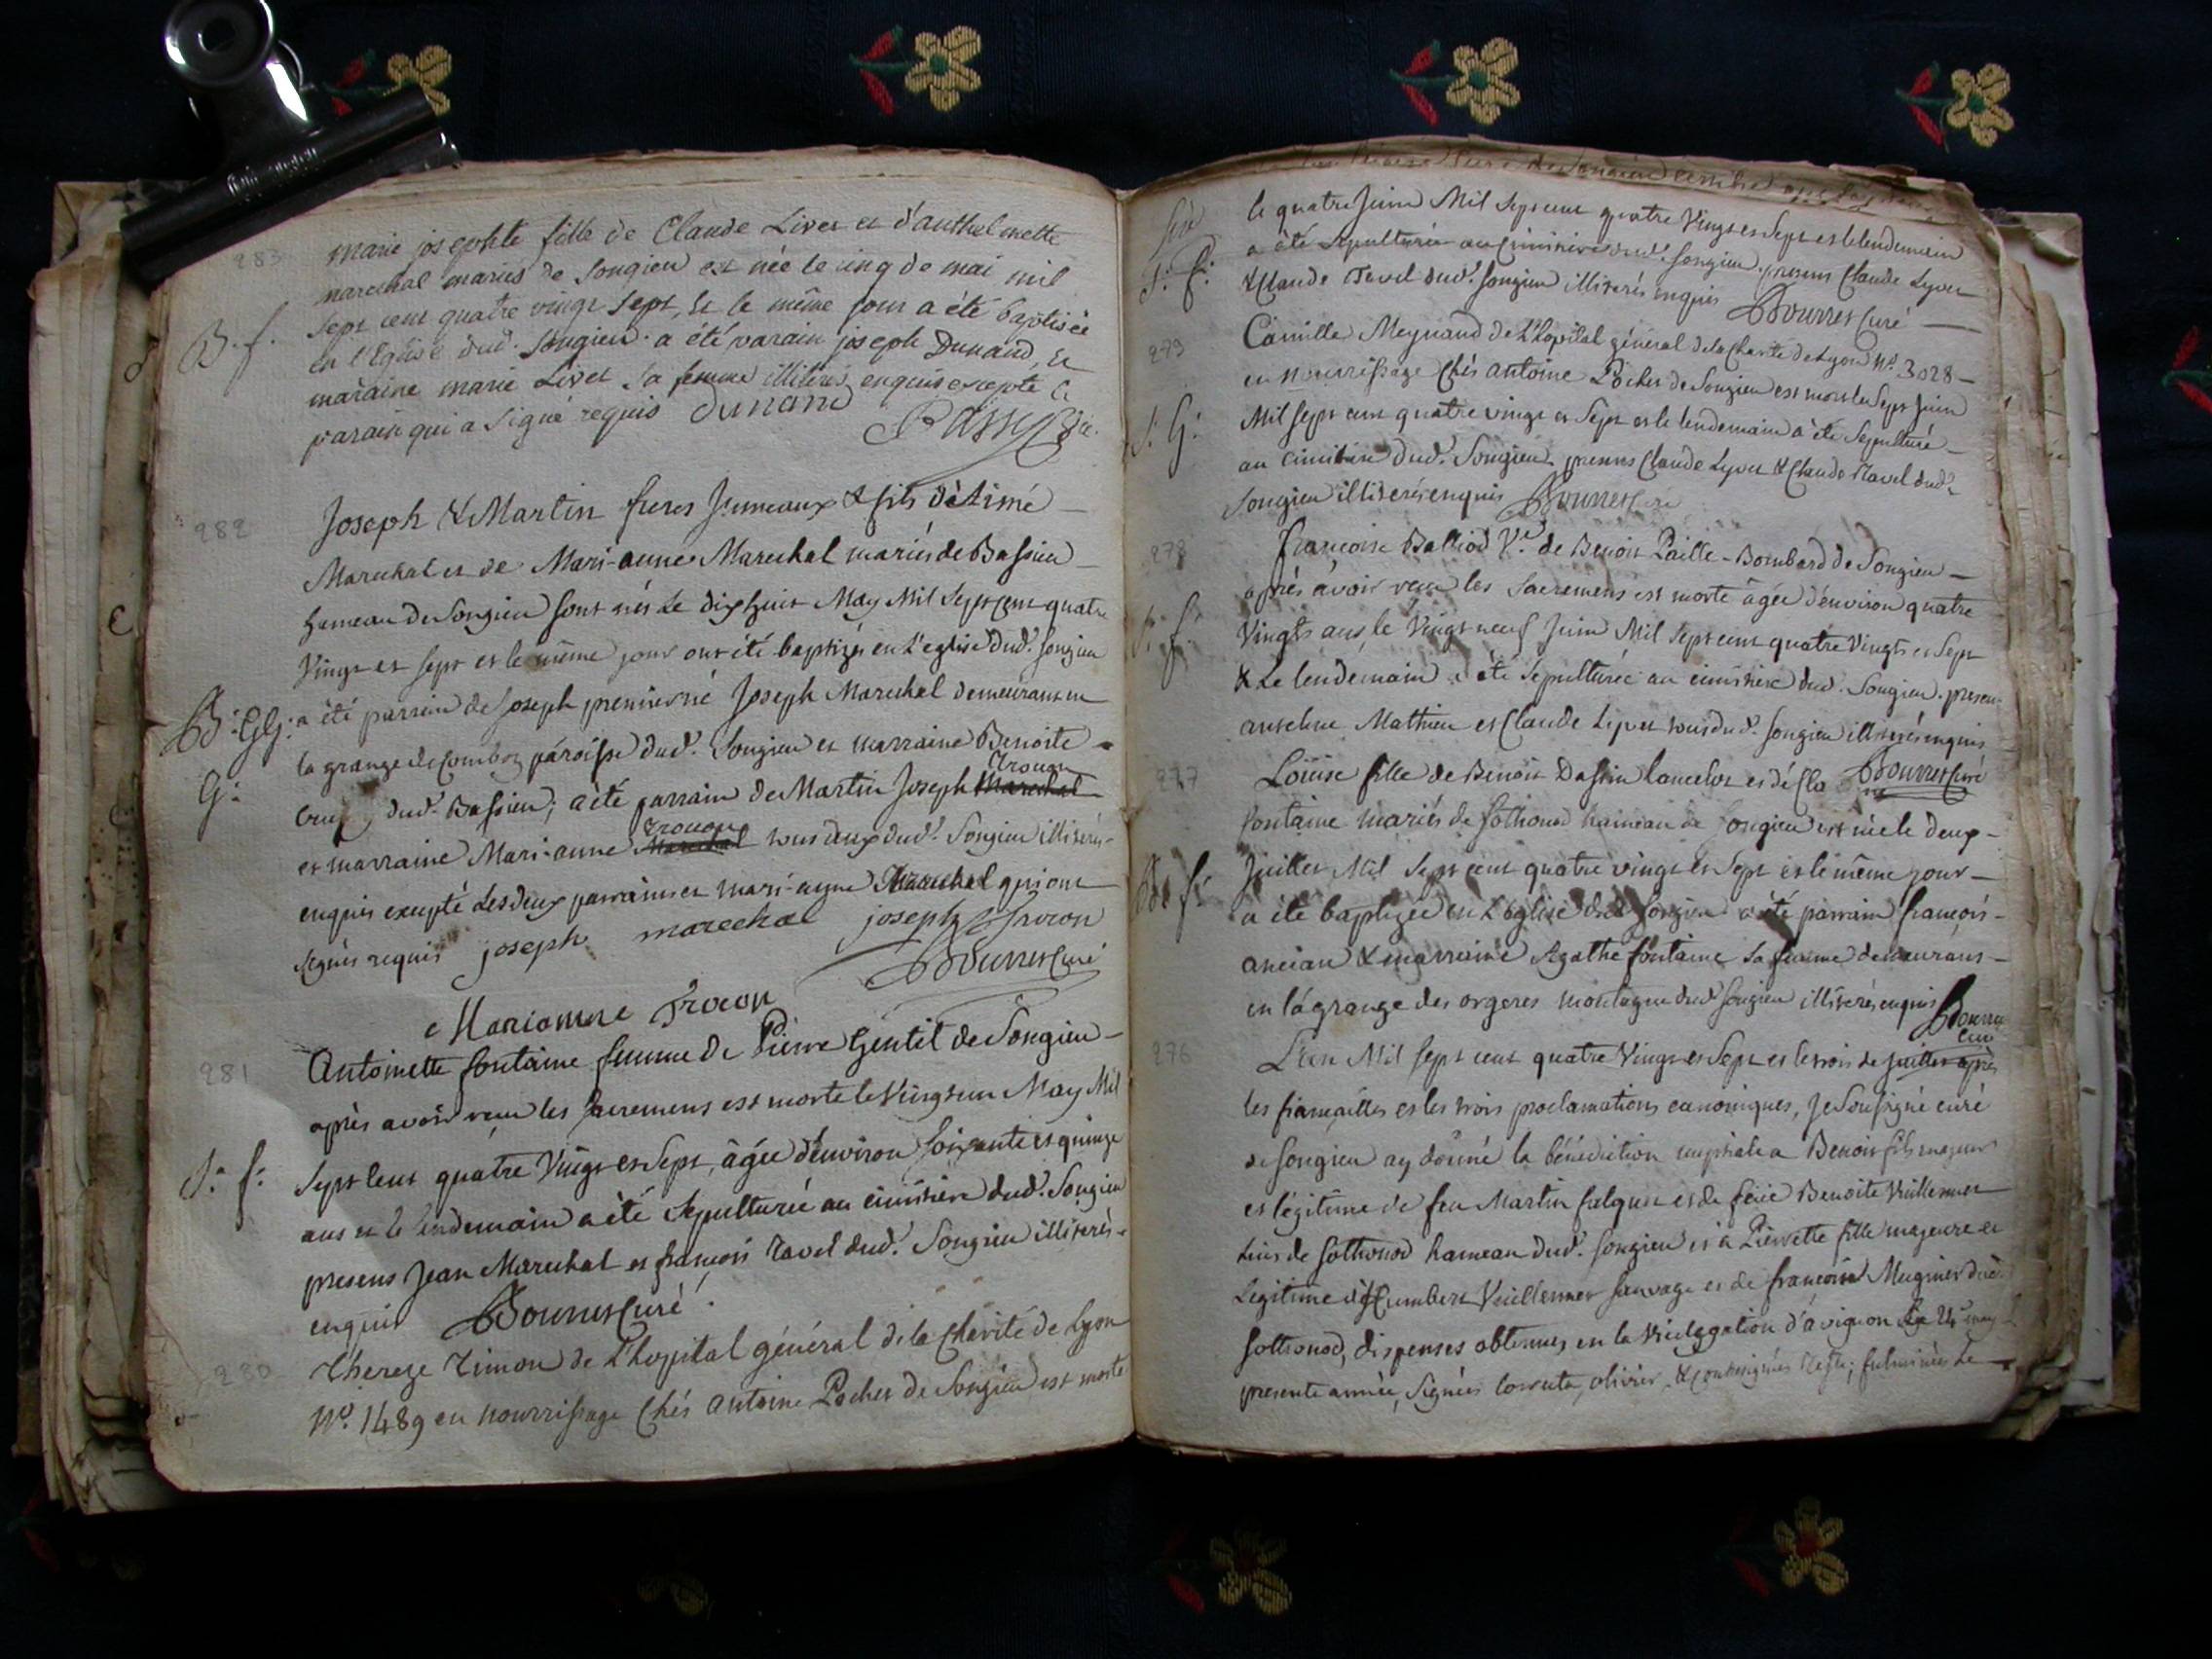 283
marie josephte fille de Claude Livet et d'anthelmette
marechal mariés de Songieu est née le cinq de mai mil
B. f.
sept cent quatre vingt sept, et le même jour a été baptisée
en l'Eglise dud. Songieu. a été parain joseph Dunand, et
maraine marie Livet sa femme illiterés enquis excepté le
parain qui a signé requis Dunand
282
Joseph & Martin freres Jumeaux & fils d'Aimé
Marechal et de Mari-anne Marechal mariés de Bassieu
hameau de Songieu sont nés le dix huit May Mil Sept cent quatre
Vingt et sept et le même jour ont été baptizés en l'eglise dud. Songieu
B: GG:
a été parrain de Joseph premier né Joseph Marechal demeurant en
la grange de paroisse dud. Songieu et marraine Benoite
G:
dud. Bassieu; a été parrain de Martin Joseph Marechal Trocon
et marraine Mari-anne Marechal Trocon tous deux dud. Songieu illiterés
enquis excepté les deux parrains et mari-anne qui ont
signés requis joseph marechal joseph Trocon
Bourret Curé
Marianne Trocon
281
Antoinette fontaine femme de Pierre Gentil de Songieu
après avoir reçu les sacremens est morte le Vingt un May Mil
S: f:
Sept Cent quatre Vingt et Sept, âgée d'environ soixante et quinze
ans et le lendemain a été sepulturée au cimitiere dud. Songieu
presens Jean Marechal et françois Tavel dud. Songieu illiterés
enquis Bourret Curé.
280
Thereze Timon de L'hopital général de la Charité de Lyon
No. 1489 en nourrissage Chés antoine Pochet de Songieu est morte
le quatre Juin Mil Sept cent quatre Vingt et Sept et le lendemain
S: f:
a été sepulturée au cimitiere dud. Songieu. presens Claude Lyvet
& Claude Tavel dud. Songieu illiterés enquis Bourret Curé
279
Camille Meynand de L'hopital général de la Charité de Lyon No. 3028
en nourrissage Chés antoine Pochet de Songieu est mort le Sept Juin
S: G:
Mil Sept cent quatre vingt et Sept et le lendemain a été Sepulturé
au cimitiere dud. Songieu presens Claude Lyvet & Claude Tavel dud.
Songieu illiterés enquis Bourret Curé
278
françoise Balliod Ve. de Benoit Paille-Bombard de Songieu
après avoir reçu les Sacremens est morte âgée d'environ quatre
S: f:
Vingts ans le Vingt neuf Juin Mil Sept cent quatre Vingts et Sept
& Le lendemain a été sepulturée au cimitiere dud. Songieu. presens
anselme Mathieu et Claude Lyvet tous dud. Songieu illiterés enquis
Bourret Curé
277
Loüise fille de Benoit Dassin lancelot et de Cla
fontaine mariés de Sothonod hameau de Songieu est née le deux
B: f:
Juillet Mil Sept cent quatre vingt et Sept et le même jour
a été baptizée en L'église dud. Songieu a été parrain françois
ancian & marraine Agathe fontaine sa femme demeurans
en la grange des orgeres montagne dud. Songieu illiterés enquis Bourret
Curé
276
L'an Mil Sept cent quatre Vingt et Sept et le trois de juillet après
les fiançailles et les trois proclamations canoniques, Je Soussigné curé
de Songieu ay donné la bénédiction nuptiale a Benoit fils majeur
et légitime de feu Martin falquet et de feüe Benoite Vuillermet
de Sothonod hameau dud. Songieu et a Pierrette fille majeure et
Legitime d'humbert Vuillermet Sauvage et de françoise Meginer dud.
Sothonod, dispenses obtenues en la Vicelegation d'avignon Le 24 may
presente année, Signées olivier, & fulminées Le